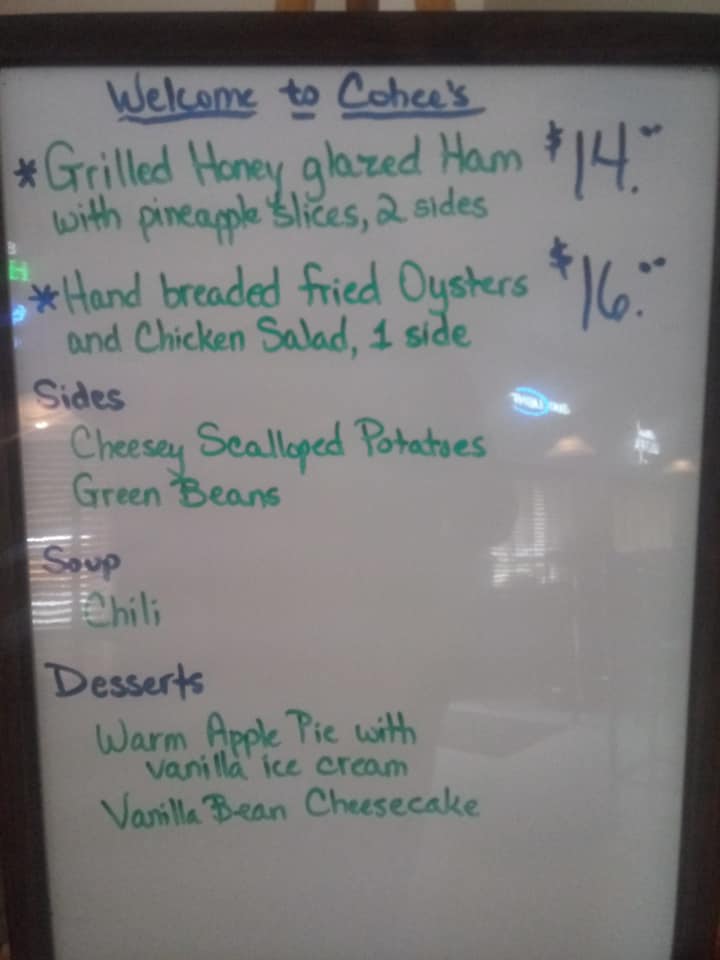 Welcome to Cohee's
* Grilled Honey glazed Ham $14.00
with pineapple slices, 2 sides
* Hand breaded fried Oysters $16.00
and Chicken Salad, 1 side
Sides
Cheesey Scalloped Potatoes
Green Beans
Soup
Chili
Desserts
Warm Apple Pie with
vanilla ice cream
Vanilla Bean Cheesecake